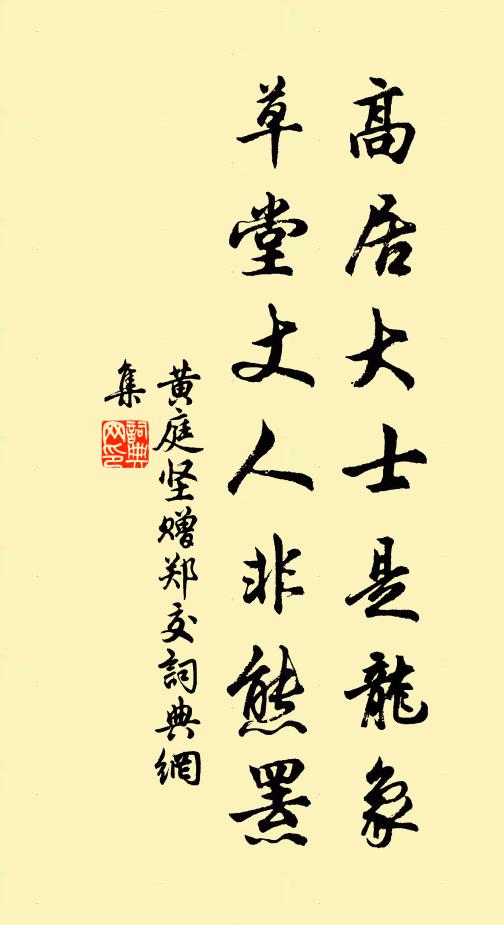 高居大士是龍象
草堂丈人非熊羆
黄庭坚赠郑交詞典網
集
詞典网印